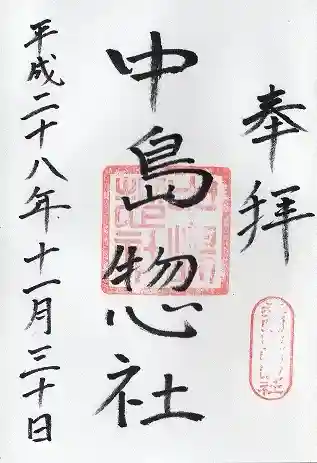 奉拝
中島惣社
平成二十八年十一月三十日